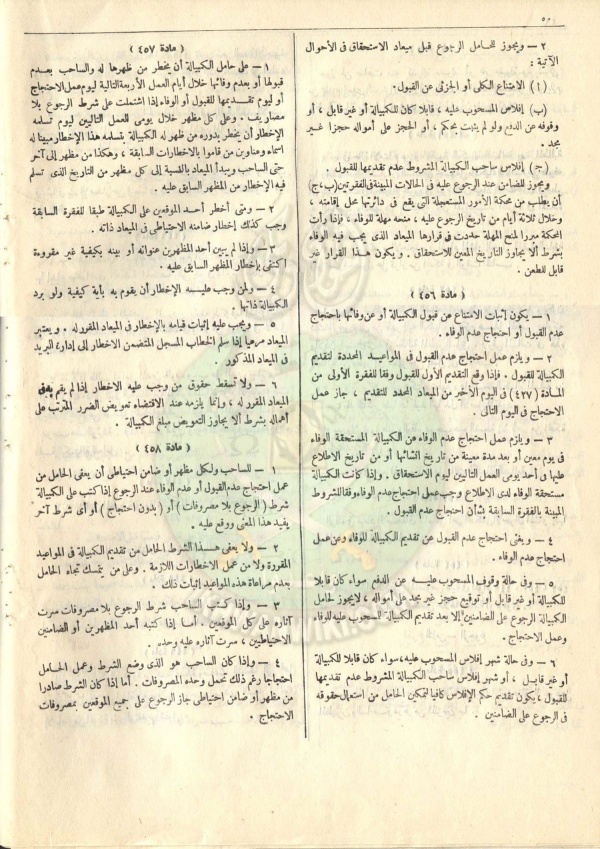 ٥٠
٢ – ويجوز للحامل الرجوع قبل ميعاد الاستحقاق فى الأحوال
الآتية :
( أ ) الامتناع الكلى أو الجزئى عن القبول .
(ب) إفلاس المسحوب عليه ، قابلا كان للكبيالة أو غير قابل ، أو
وقوفه عن الدفع ولو لم يثبت بحكم ، أو الحجز على أمواله حجزا غير
مجد .
(ج) إفلاس ساحب الكبيالة المشروط عدم تقديمها للقبول .
ويجوز للضامن عند الرجوع عليه فى الحالات المبينة فى الفقرتين (ب،ج)
أن يطلب من محكمة الأمور المستعجلة التى يقع فى دائرتها محل إقامته ،
وخلال ثلاثة أيام من تاريخ الرجوع عليه ، منحه مهلة للوفاء ، فإذا رأت
المحكمة مبررا لمنح المهلة حددت فى قرارها الميعاد الذى يجب فيه الوفاء
بشرط ألا يجاوز التاريخ المعين للاستحقاق . ويكون هذا القرار غير
قابل للطعن .
( مادة ٤٥٦ )
١ – يكون إثبات الامتناع عن قبول الكبيالة أو عن وفائها باحتجاج
عدم القبول أو احتجاج عدم الوفاء .
٢ – ويلزم عمل احتجاج عدم القبول فى المواعيد المحددة لتقديم
الكبيالة للقبول . فإذا وقع التقديم الأول للقبول وفقا للفقرة الأولى من
المادة (٤٢٧) فى اليوم الأخير من الميعاد المحدد للتقديم ، جاز عمل
الاحتجاج فى اليوم التالى .
٣ – ويلزم عمل احتجاج عدم الوفاء عن الكبيالة المستحقة الوفاء
فى يوم معين أو بعد مدة معينة من تاريخ انشائها أو من تاريخ الاطلاع
عليها فى أحد يومى العمل التاليين ليوم الاستحقاق . وإذا كانت الكبيالة
مستحقة الوفاء لدى الاطلاع وجب عمل احتجاج عدم الوفاء وفقا للشروط
المبينة بالفقرة السابقة بشأن احتجاج عدم القبول .
٤ – ويغنى احتجاج عدم القبول عن تقديم الكبيالة للوفاء وعن عمل
احتجاج عدم الوفاء .
٥ – وفى حالة وقوف المسحوب عليه عن الدفع سواء كان قابلا
للكبيالة أو غير قابل أو توقيع حجز غير مجد على أمواله ، لا يجوز لحامل
الكبيالة الرجوع على الضامنين إلا بعد تقديم الكبيالة للمسحوب عليه للوفاء
وعمل الاحتجاج .
٦ – وفى حالة شهر إفلاس المسحوب عليه، سواء كان قابلا للكبيالة
أو غير قابل ، أو شهر إفلاس ساحب الكبيالة المشروط عدم تقديمها
للقبول ، يكون تقديم حكم الإفلاس كافيا لتمكين الحامل من استعمال حقوقه
فى الرجوع على الضامنين .
( مادة ٤٥٧ )
١ – على حامل الكبيالة أن يخطر من ظهرها له والساحب بعدم
قبولها أو بعدم وفائها خلال أيام العمل الأربعة التالية ليوم عمل الاحتجاج
أو ليوم تقديمها للقبول أو الوفاء إذا اشتملت على شرط الرجوع بلا
مصاريف . وعلى كل مظهر خلال يومى العمل التاليين ليوم تسلمه
الإخطار أن يخطر بدوره من ظهر له الكبيالة بتسلمه هذا الإخطار مبينا له
اسماء وعناوين من قاموا بالاخطارات السابقة ، وهكذا من مظهر إلى آخر
حتى الساحب ويبدأ الميعاد بالنسبة إلى كل مظهر من التاريخ الذى تسلم
فيه الإخطار من المظهر السابق عليه .
٢ – ومتى أخطر أحد الموقعين على الكبيالة طبقا للفقرة السابقة
وجب كذلك إخطار ضامنه الاحتياطى فى الميعاد ذاته .
٣ – وإذا لم يبين أحد المظهرين عنوانه أو بينه بكيفية غير مقروءة
اكتفى بإخطار المظهر السابق عليه .
٤ – ولمن وجب عليه الإخطار أن يقوم به بأية كيفية ولو برد
الكبيالة ذاتها .
٥ – ويجب عليه إثبات قيامه بالإخطار فى الميعاد المقرر له . ويعتبر
الميعاد مرعيا إذا سلم الخطاب المسجل المتضمن الاخطار إلى إدارة البريد
فى الميعاد المذكور .
٦ – ولا تسقط حقوق من وجب عليه الاخطار إذا لم يقم به فى
الميعاد المقرر له ، وإنما يلزمه عند الاقتضاء تعويض الضرر المترتب على
أهماله بشرط ألا يجاوز التعويض مبلغ الكبيالة .
( مادة ٤٥٨ )
١ – للساحب ولكل مظهر أو ضامن احتياطى أن يعفى الحامل من
عمل احتجاج عدم القبول أو عدم الوفاء عند الرجوع إذا كتب على الكبيالة
شرط ( الرجوع بلا مصروفات ) أو ( بدون احتجاج ) أو أى شرط آخر
يفيد هذا المعنى ووقع عليه .
٢ – ولا يعفى هذا الشرط الحامل من تقديم الكبيالة فى المواعيد
المقررة ولا من عمل الاخطارات اللازمة . وعلى من يتمسك تجاه الحامل
بعدم مراعاة هذه المواعيد إثبات ذلك .
٣ – وإذا كتب الساحب شرط الرجوع بلا مصروفات سرت
آثاره على كل الموقعين . أما إذا كتبه أحد المظهرين أو الضامنين
الاحتياطيين ، سرت آثاره عليه وحده .
٤ – وإذا كان الساحب هو الذى وضع الشرط وعمل الحامل
احتجاجا رغم ذلك تحمل وحده المصروفات . أما إذا كان الشرط صادرا
من مظهر أو ضامن احتياطى جاز الرجوع على جميع الموقعين بمصروفات
الاحتجاج .